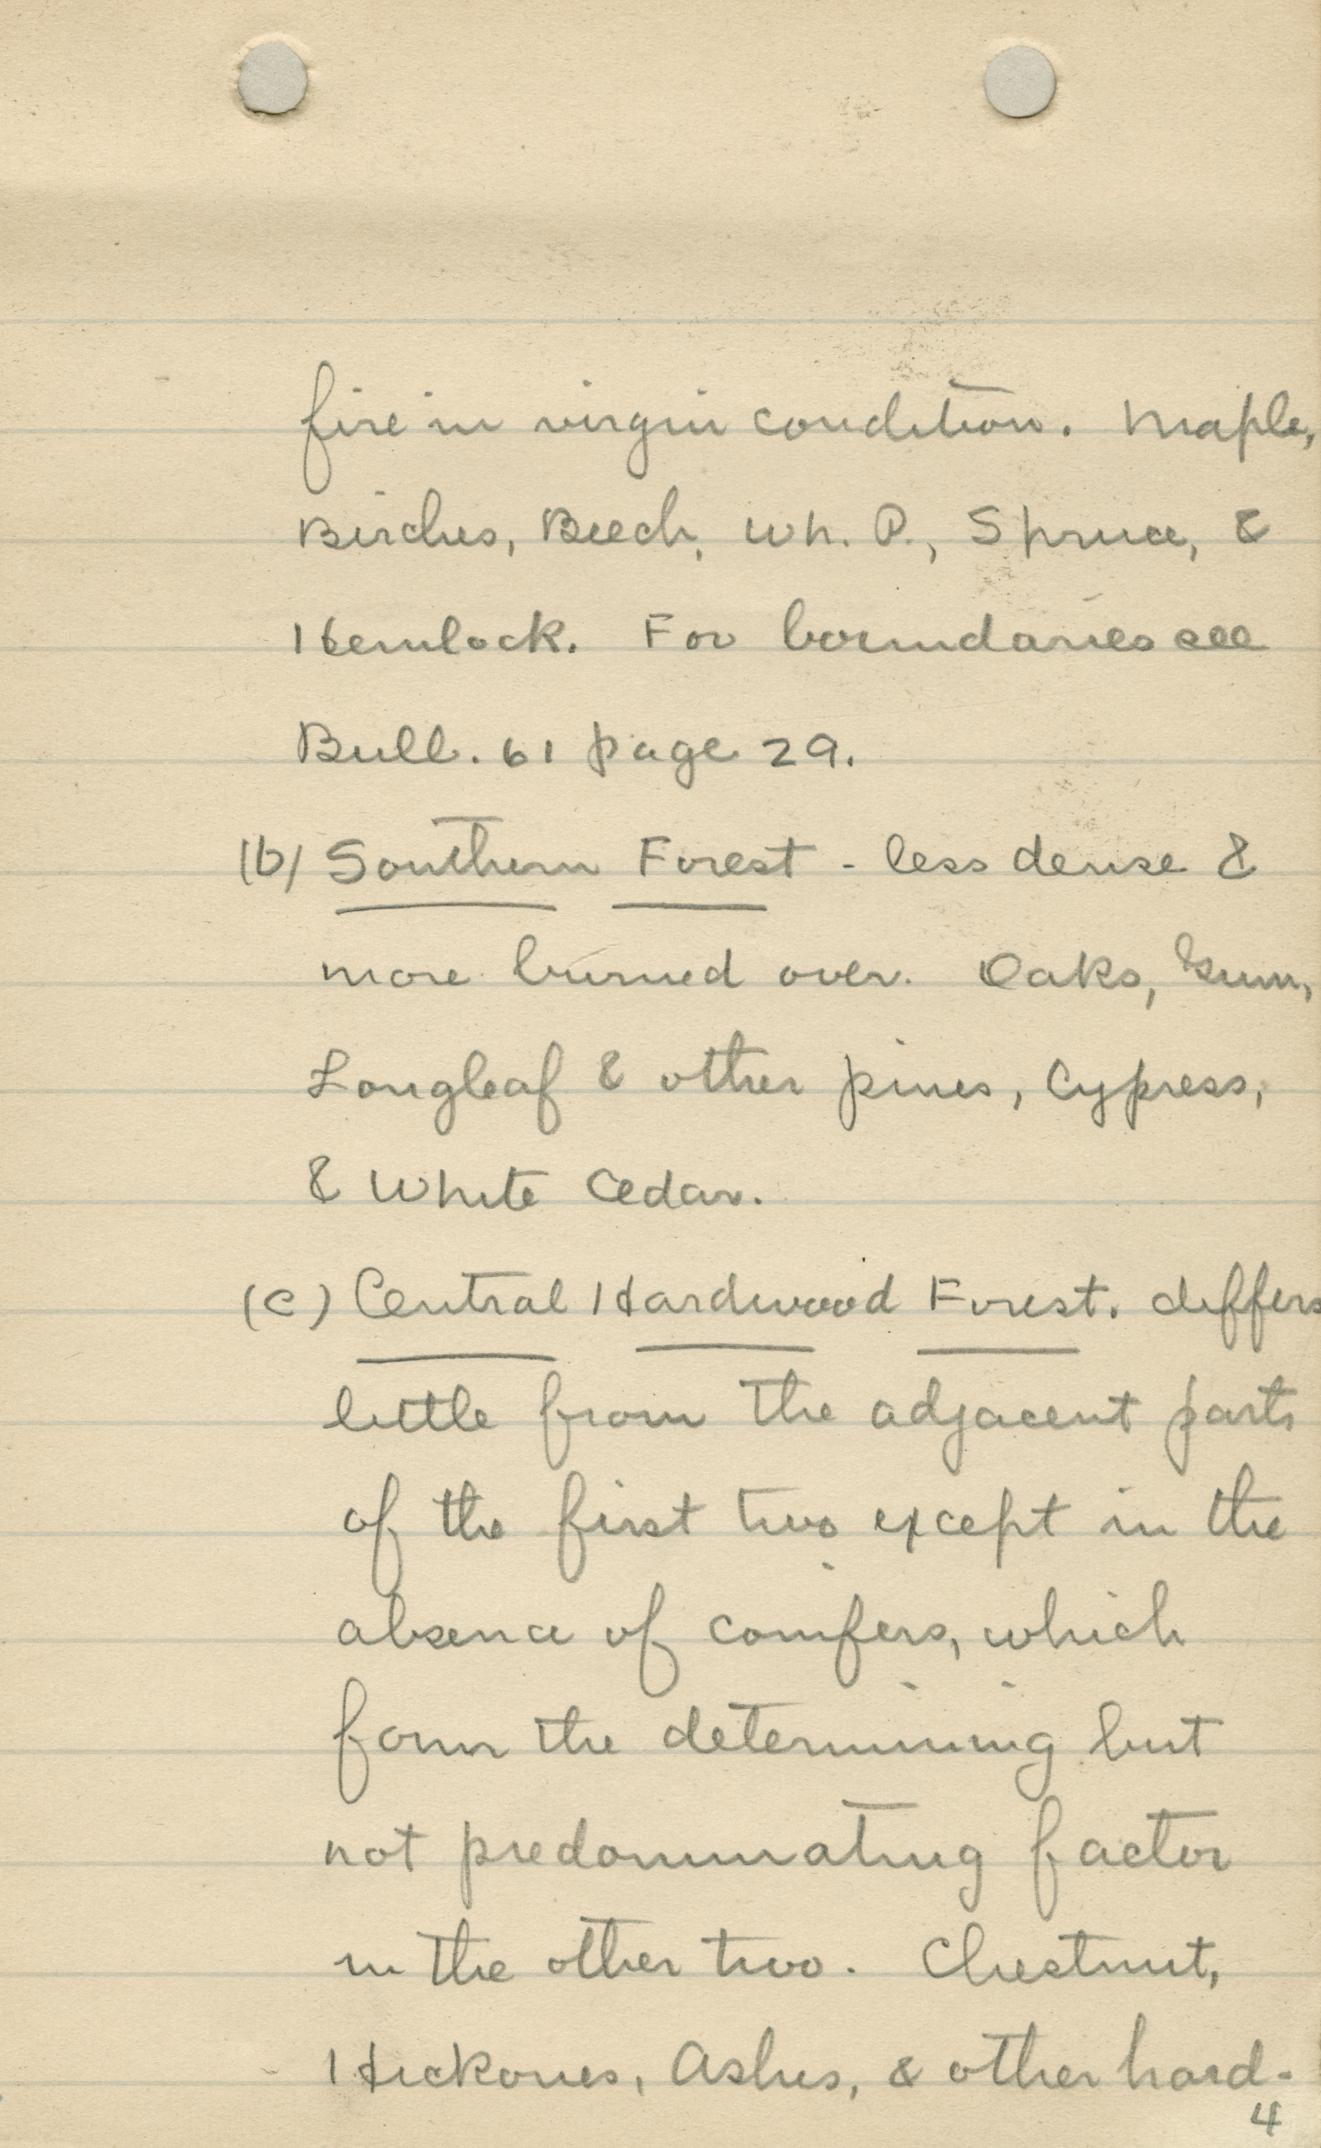 fire in virgin condition. Maple,
Birches, Beech, Wh. P., Spruce, &
Hemlock. For boundaries see
Bull. 61 page 29.
(b) Southern Forest - less dense &
more burned over. Oaks, Gum,
Longleaf & other pines, Cypress,
& White Cedar.
(c) Central Hardwood Forest. differs
little from the adjacent parts
of the first two except in the
absence of conifers, which
form the determining but
not predominating factor
in the other two. Chestnut,
Hickories, Ashes, & other hard-
4